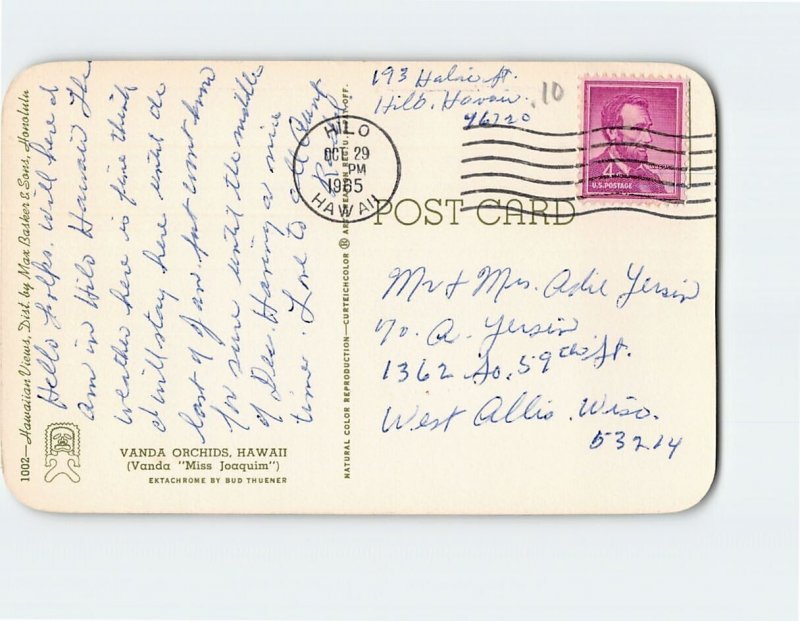 Hello folks. Will here I
am in Hilo Hawaii The
weather here is fine think
I will stay here until de
last of Jan. but wont know
for sure until the middle
of Dec. Having a nice
time. Love to all Aunt
193 St.
Hilo. Hawaii.
96720
.10
HILO
OCT 29
PM
1965
HAWAII
4¢
U.S. POSTAGE
POST CARD
Mr & Mrs. Yersin
℅ A. Yersin
1362 So. 59th St.
West Allis. Wisc.
53214
1002—Hawaiian Views, Dist. by Max Basker & Sons, Honolulu
VANDA ORCHIDS, HAWAII
(Vanda "Miss Joaquim")
EKTACHROME BY BUD THUENER
NATURAL COLOR REPRODUCTION—CURTEICHCOLOR ® ART-CREATION REG. U.S. PAT. OFF.